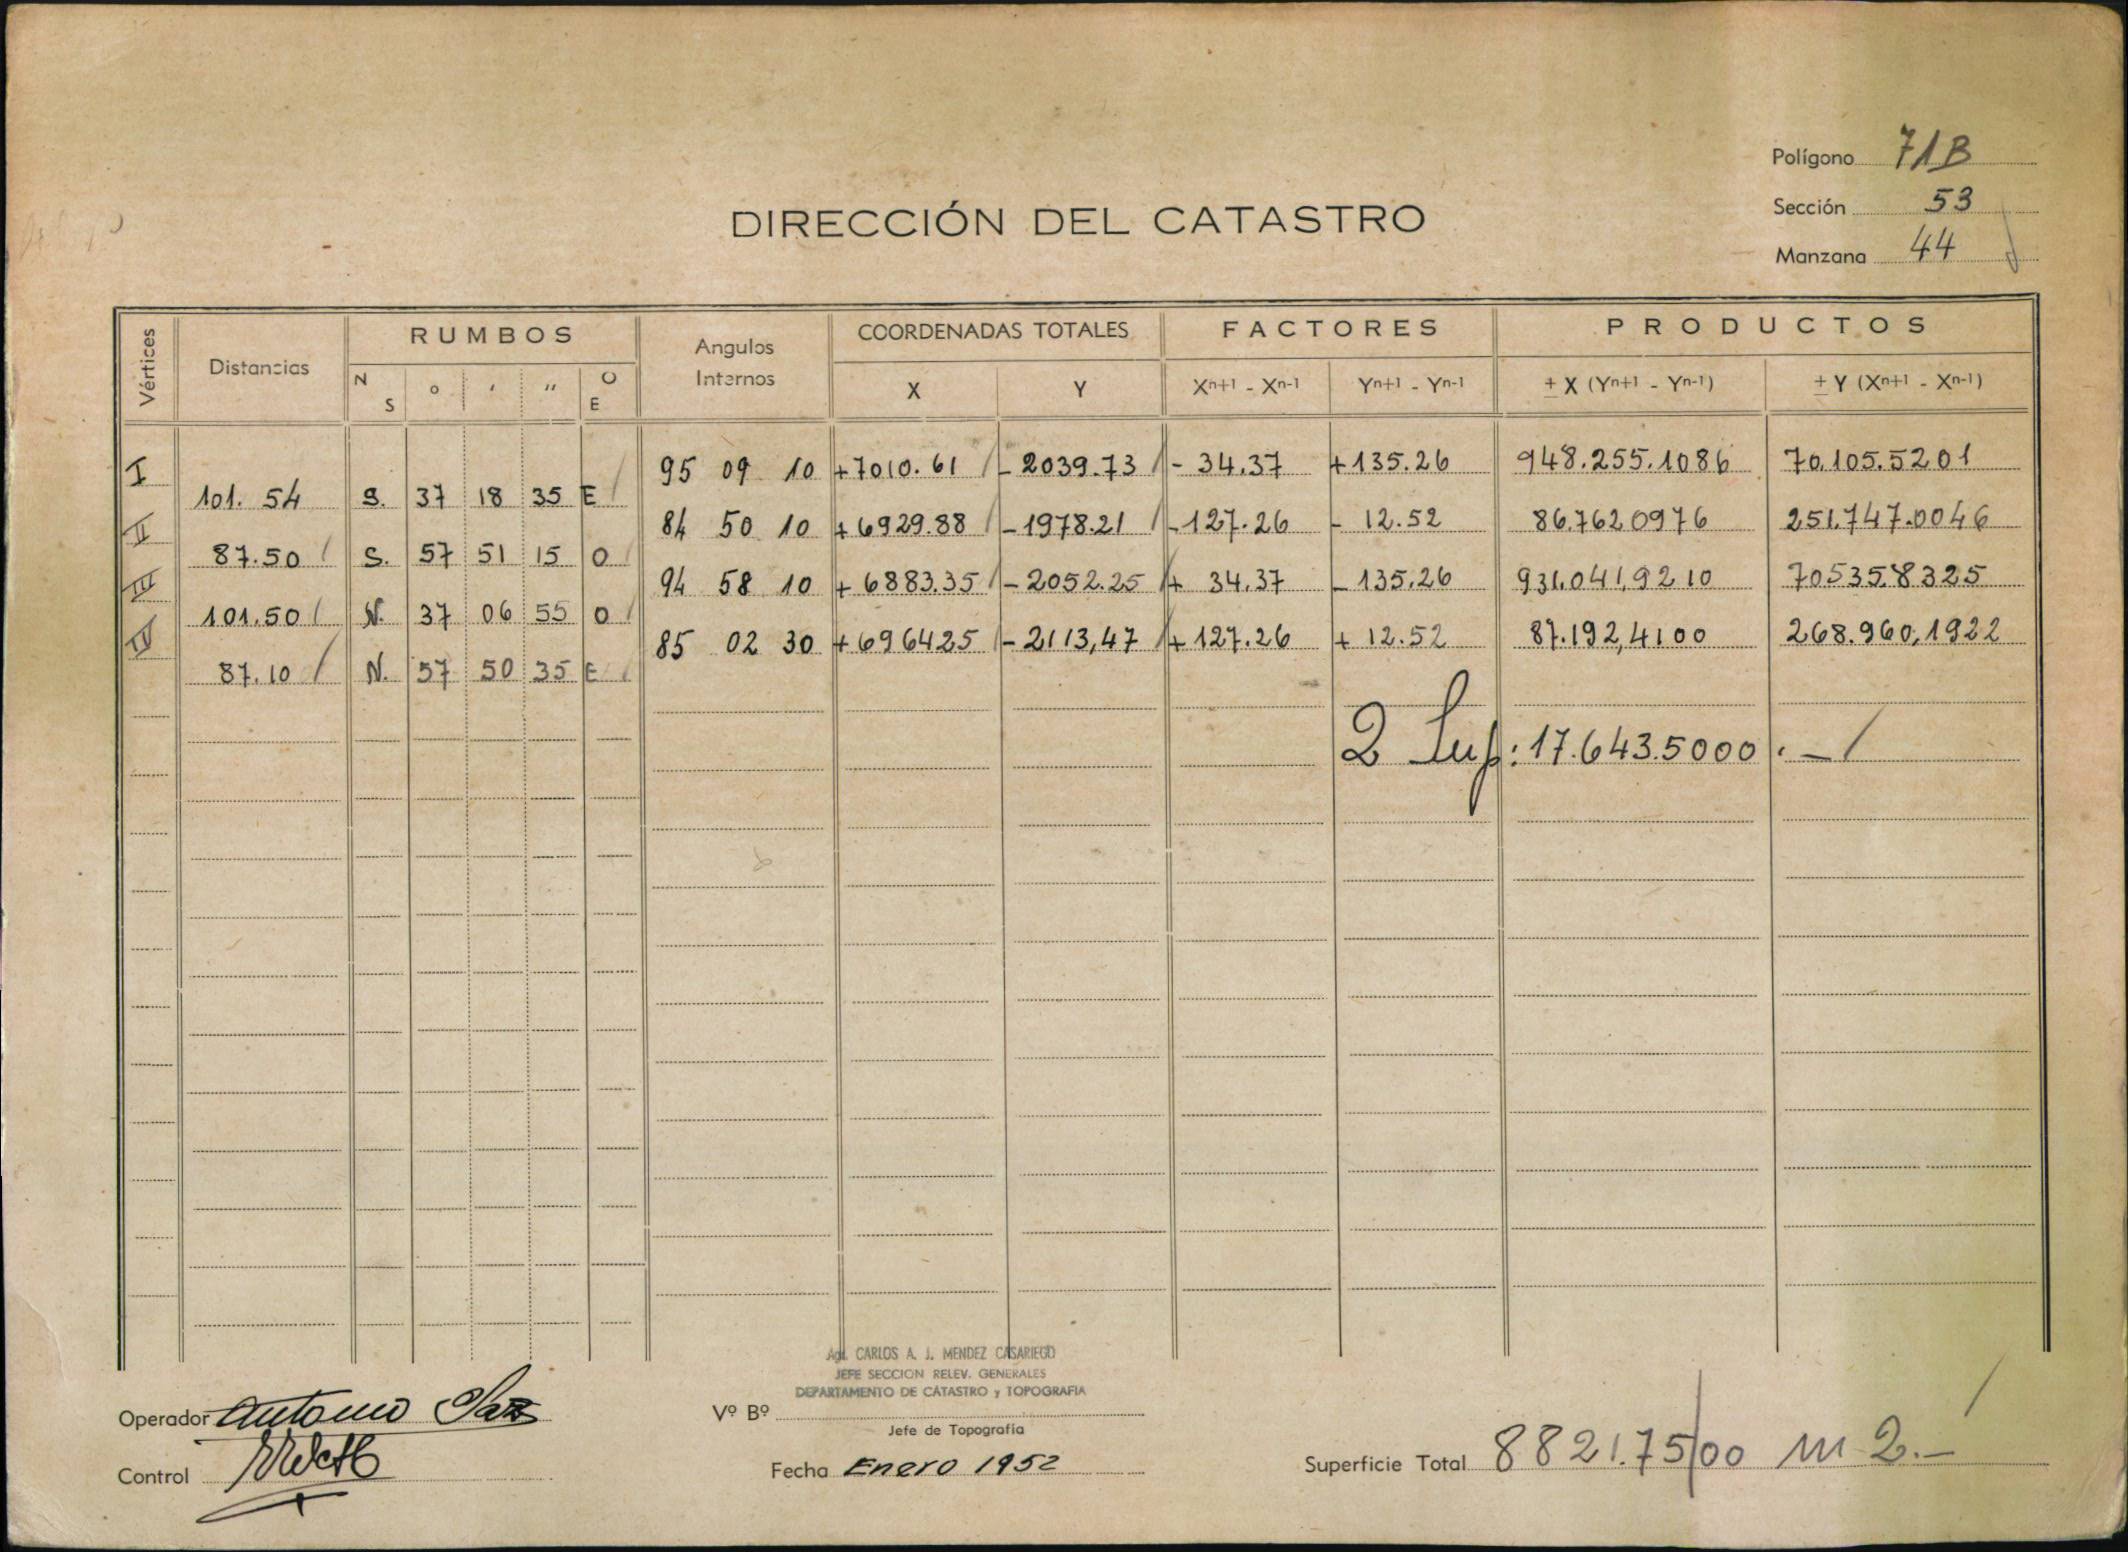 Polígono 71B
DIRECCIÓN DEL CATASTRO
Sección 53
Manzana 44
Vértices Distancias RUMBOS Angulos Internos COORDENADAS TOTALES FACTORES PRODUCTOS
N S ° ′ ″ O E X Y Xn+1 - Xn-1 Yn+1 - Yn-1 ± X (Yn+1 - Yn-1) ± Y (Xn+1 - Xn-1)
I 95 09 10 +7010.61 - 2039.73 - 34.37 +135.26 948.255.1086 70.105.5201
101.54 S. 37 18 35 E
II 84 50 10 +6929.88 -1978.21 -127.26 - 12.52 86.762.0976 251.747.0046
87.50 S. 57 51 15 O
III 94 58 10 + 6883.35 -2052.25 + 34.37 - 135.26 931.041,9210 70535.8325
101.50 N. 37 06 55 O
IV 85 02 30 +696425 -2113,47 +127.26 + 12.52 87.192,4100 268.960,1922
87.10 N. 57 50 35 E
2 Sup: 17.643.5000 . -
Agr. CARLOS A. J. MENDEZ CASARIEGO
JEFE SECCION RELEV. GENERALES
DEPARTAMENTO DE CATASTRO y TOPOGRAFIA
Operador Antonio
Vº Bº
Jefe de Topografía
Control
Fecha Enero 1952
Superficie Total 8821.7500 m 2.-